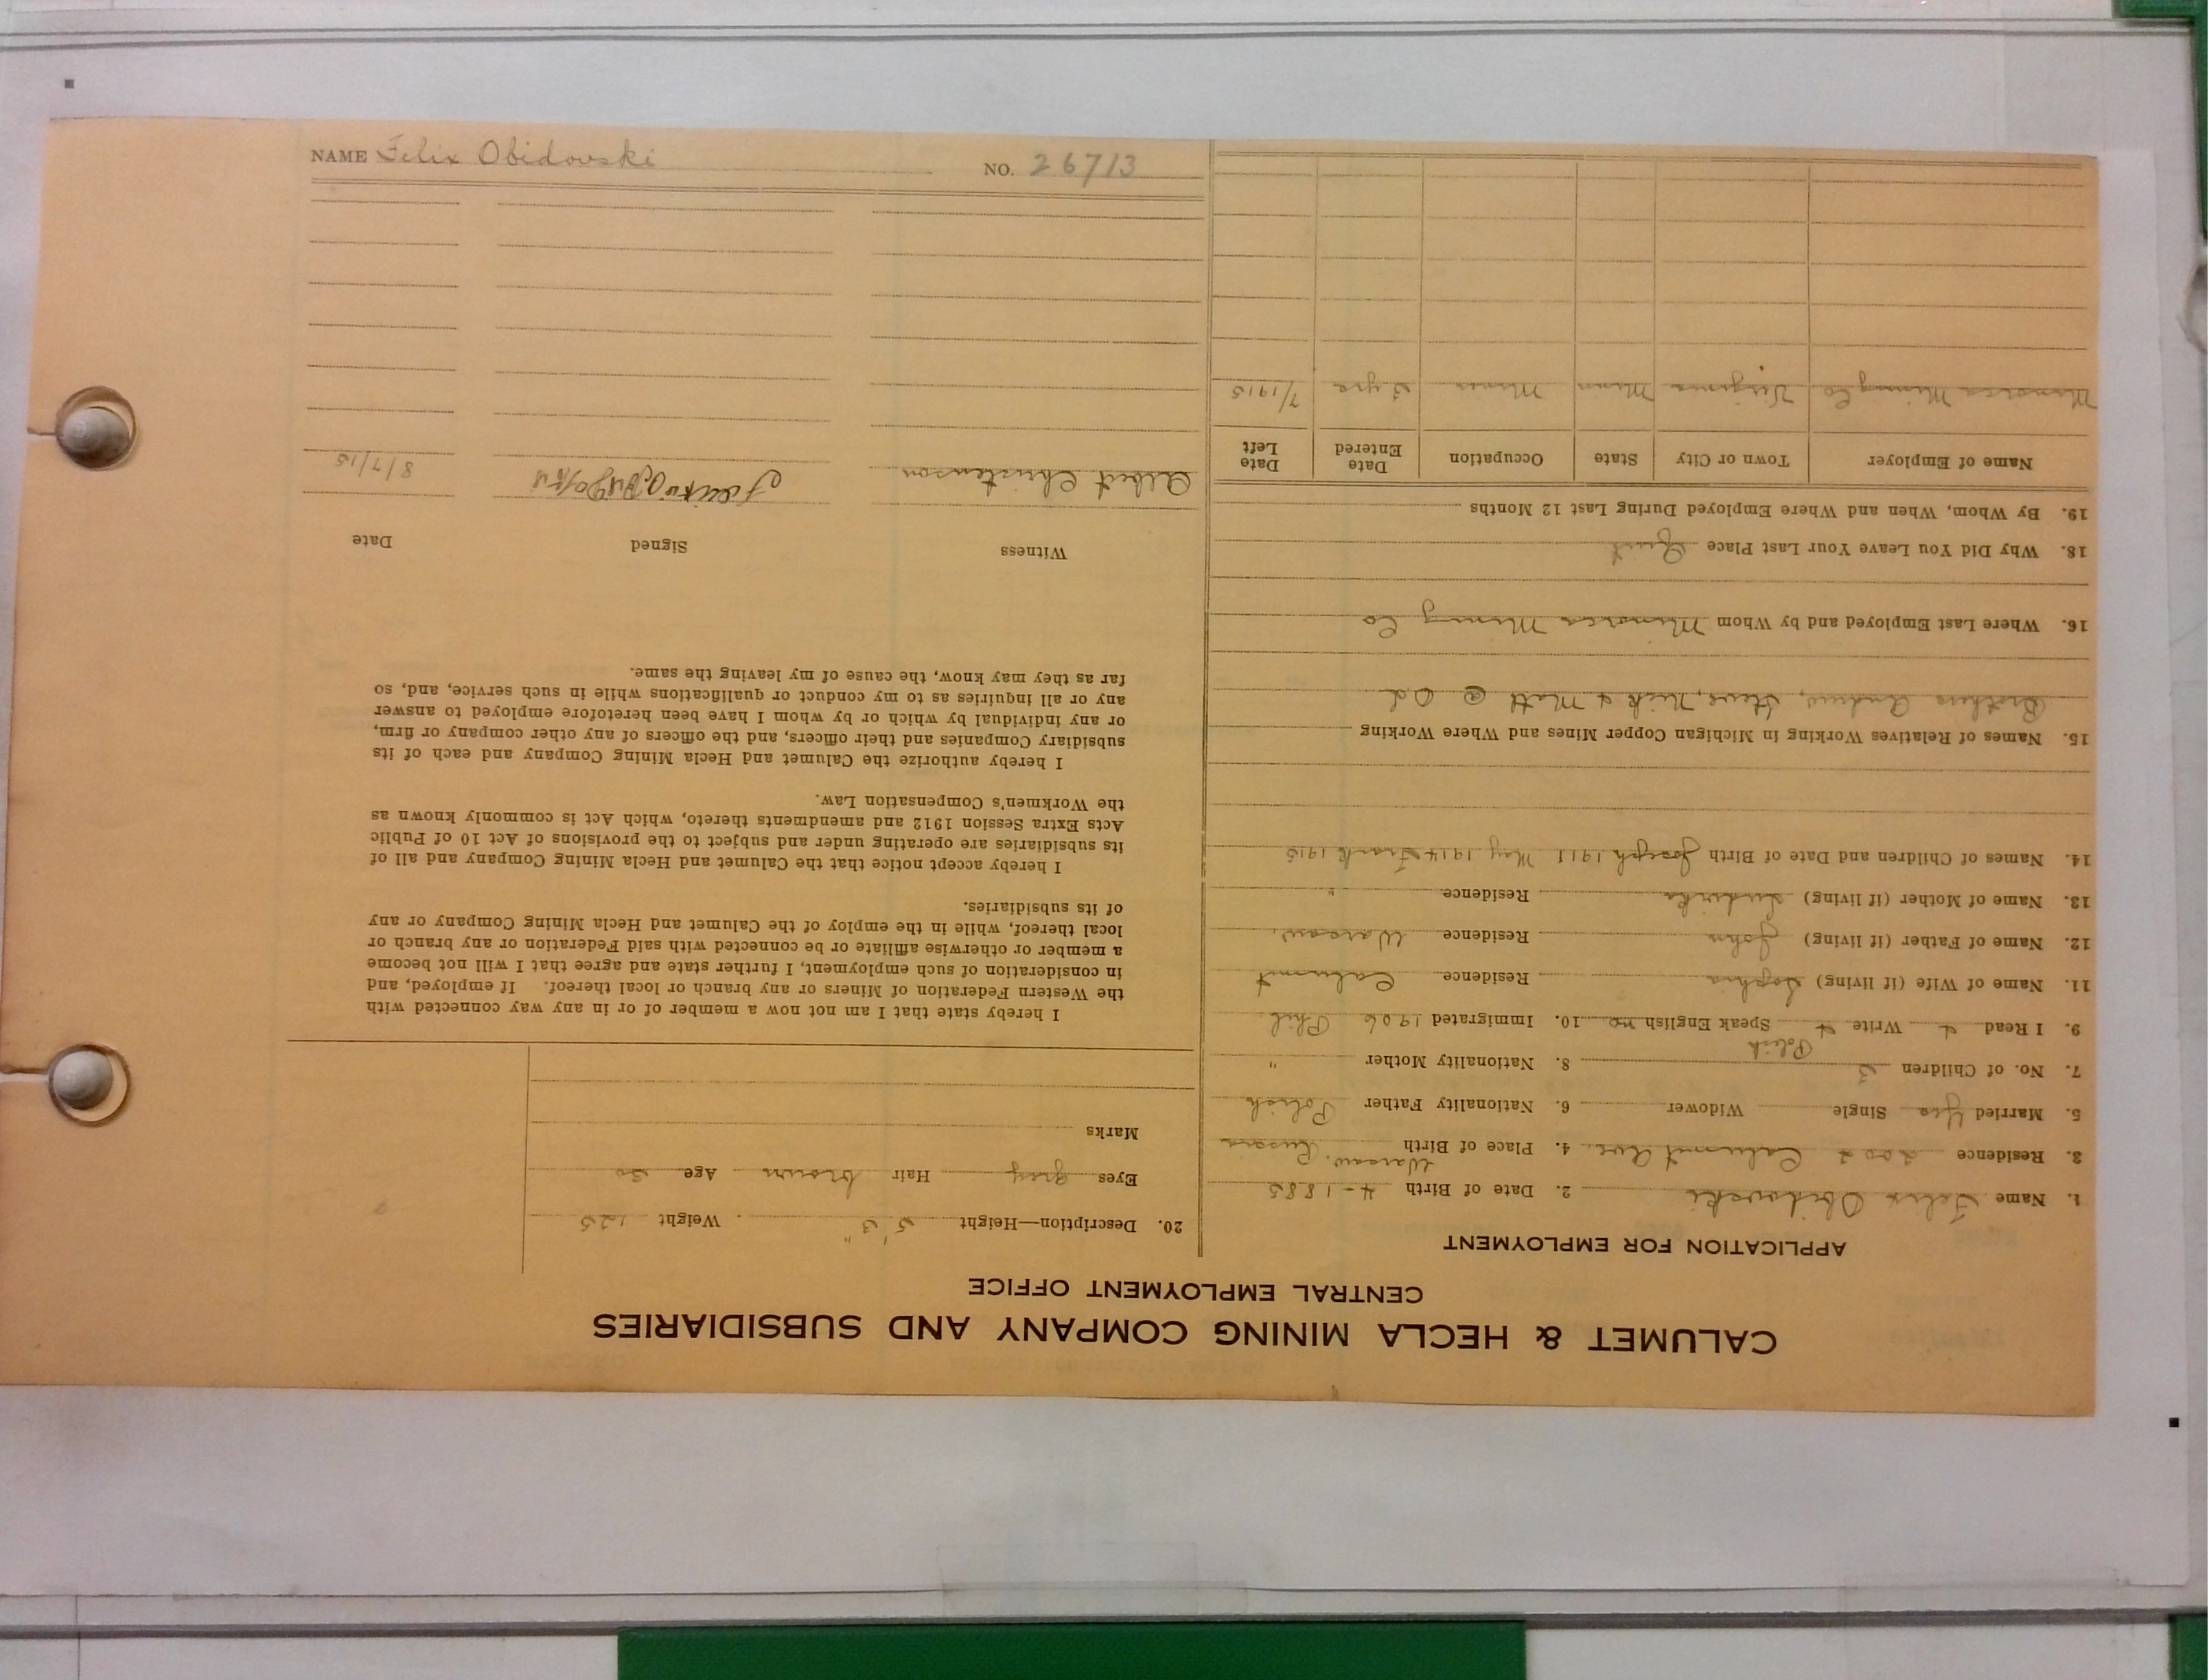 CALUMET & HECLA MINING COMPANY AND SUBSIDIARIES
CENTRAL EMPLOYMENT OFFICE
APPLICATION FOR EMPLOYMENT
1. Name Felix Obidowski 2. Date of Birth 4-1885
3. Residence Calumet Ave. 4. Place of Birth Warsaw. Russia
5. Married Yes Single Widower 6. Nationality Father Polish
7. No. of Children 3 8. Nationality Mother "
Polish
9. I Read + Write + Speak English no 10. Immigrated 1906 Phil.
11. Name of Wife (if living) Sophia Residence Calumet
12. Name of Father (if living) John Residence Warsaw.
13. Name of Mother (if living) Residence "
14. Names of Children and Date of Birth Joseph 1911 May 1914 Frank 1915
15. Names of Relatives Working in Michigan Copper Mines and Where Working
Brothers Andrew, Steve, Nick & Matt @ O.L
16. Where Last Employed and by Whom Minorca Mining Co
18. Why Did You Leave Your Last Place Quit
19. By Whom, When and Where Employed During Last 12 Months
Name of Employer Town or City State Occupation Date Entered Date Left
Minorca Mining Co Virginia Minn Miner 3 yrs 7/1915
20. Description—Height 5' 3" Weight 125
Eyes gray Hair brown Age 30
Marks
I hereby state that I am not now a member of or in any way connected with
the Western Federation of Miners or any branch or local thereof. If employed, and
in consideration of such employment, I further state and agree that I will not become
a member or otherwise affiliate or be connected with said Federation or any branch or
local thereof, while in the employ of the Calumet and Hecla Mining Company or any
of its subsidiaries.
I hereby accept notice that the Calumet and Hecla Mining Company and all of
its subsidiaries are operating under and subject to the provisions of Act 10 of Public
Acts Extra Session 1912 and amendments thereto, which Act is commonly known as
the Workmen's Compensation Law.
I hereby authorize the Calumet and Hecla Mining Company and each of its
subsidiary Companies and their officers, and the officers of any other company or firm,
or any individual by which or by whom I have been heretofore employed to answer
any or all inquiries as to my conduct or qualifications while in such service, and, so
far as they may know, the cause of my leaving the same.
Witness Signed Date
Albert Christenson 8/7/15
NAME Felix Obidowski NO. 26713